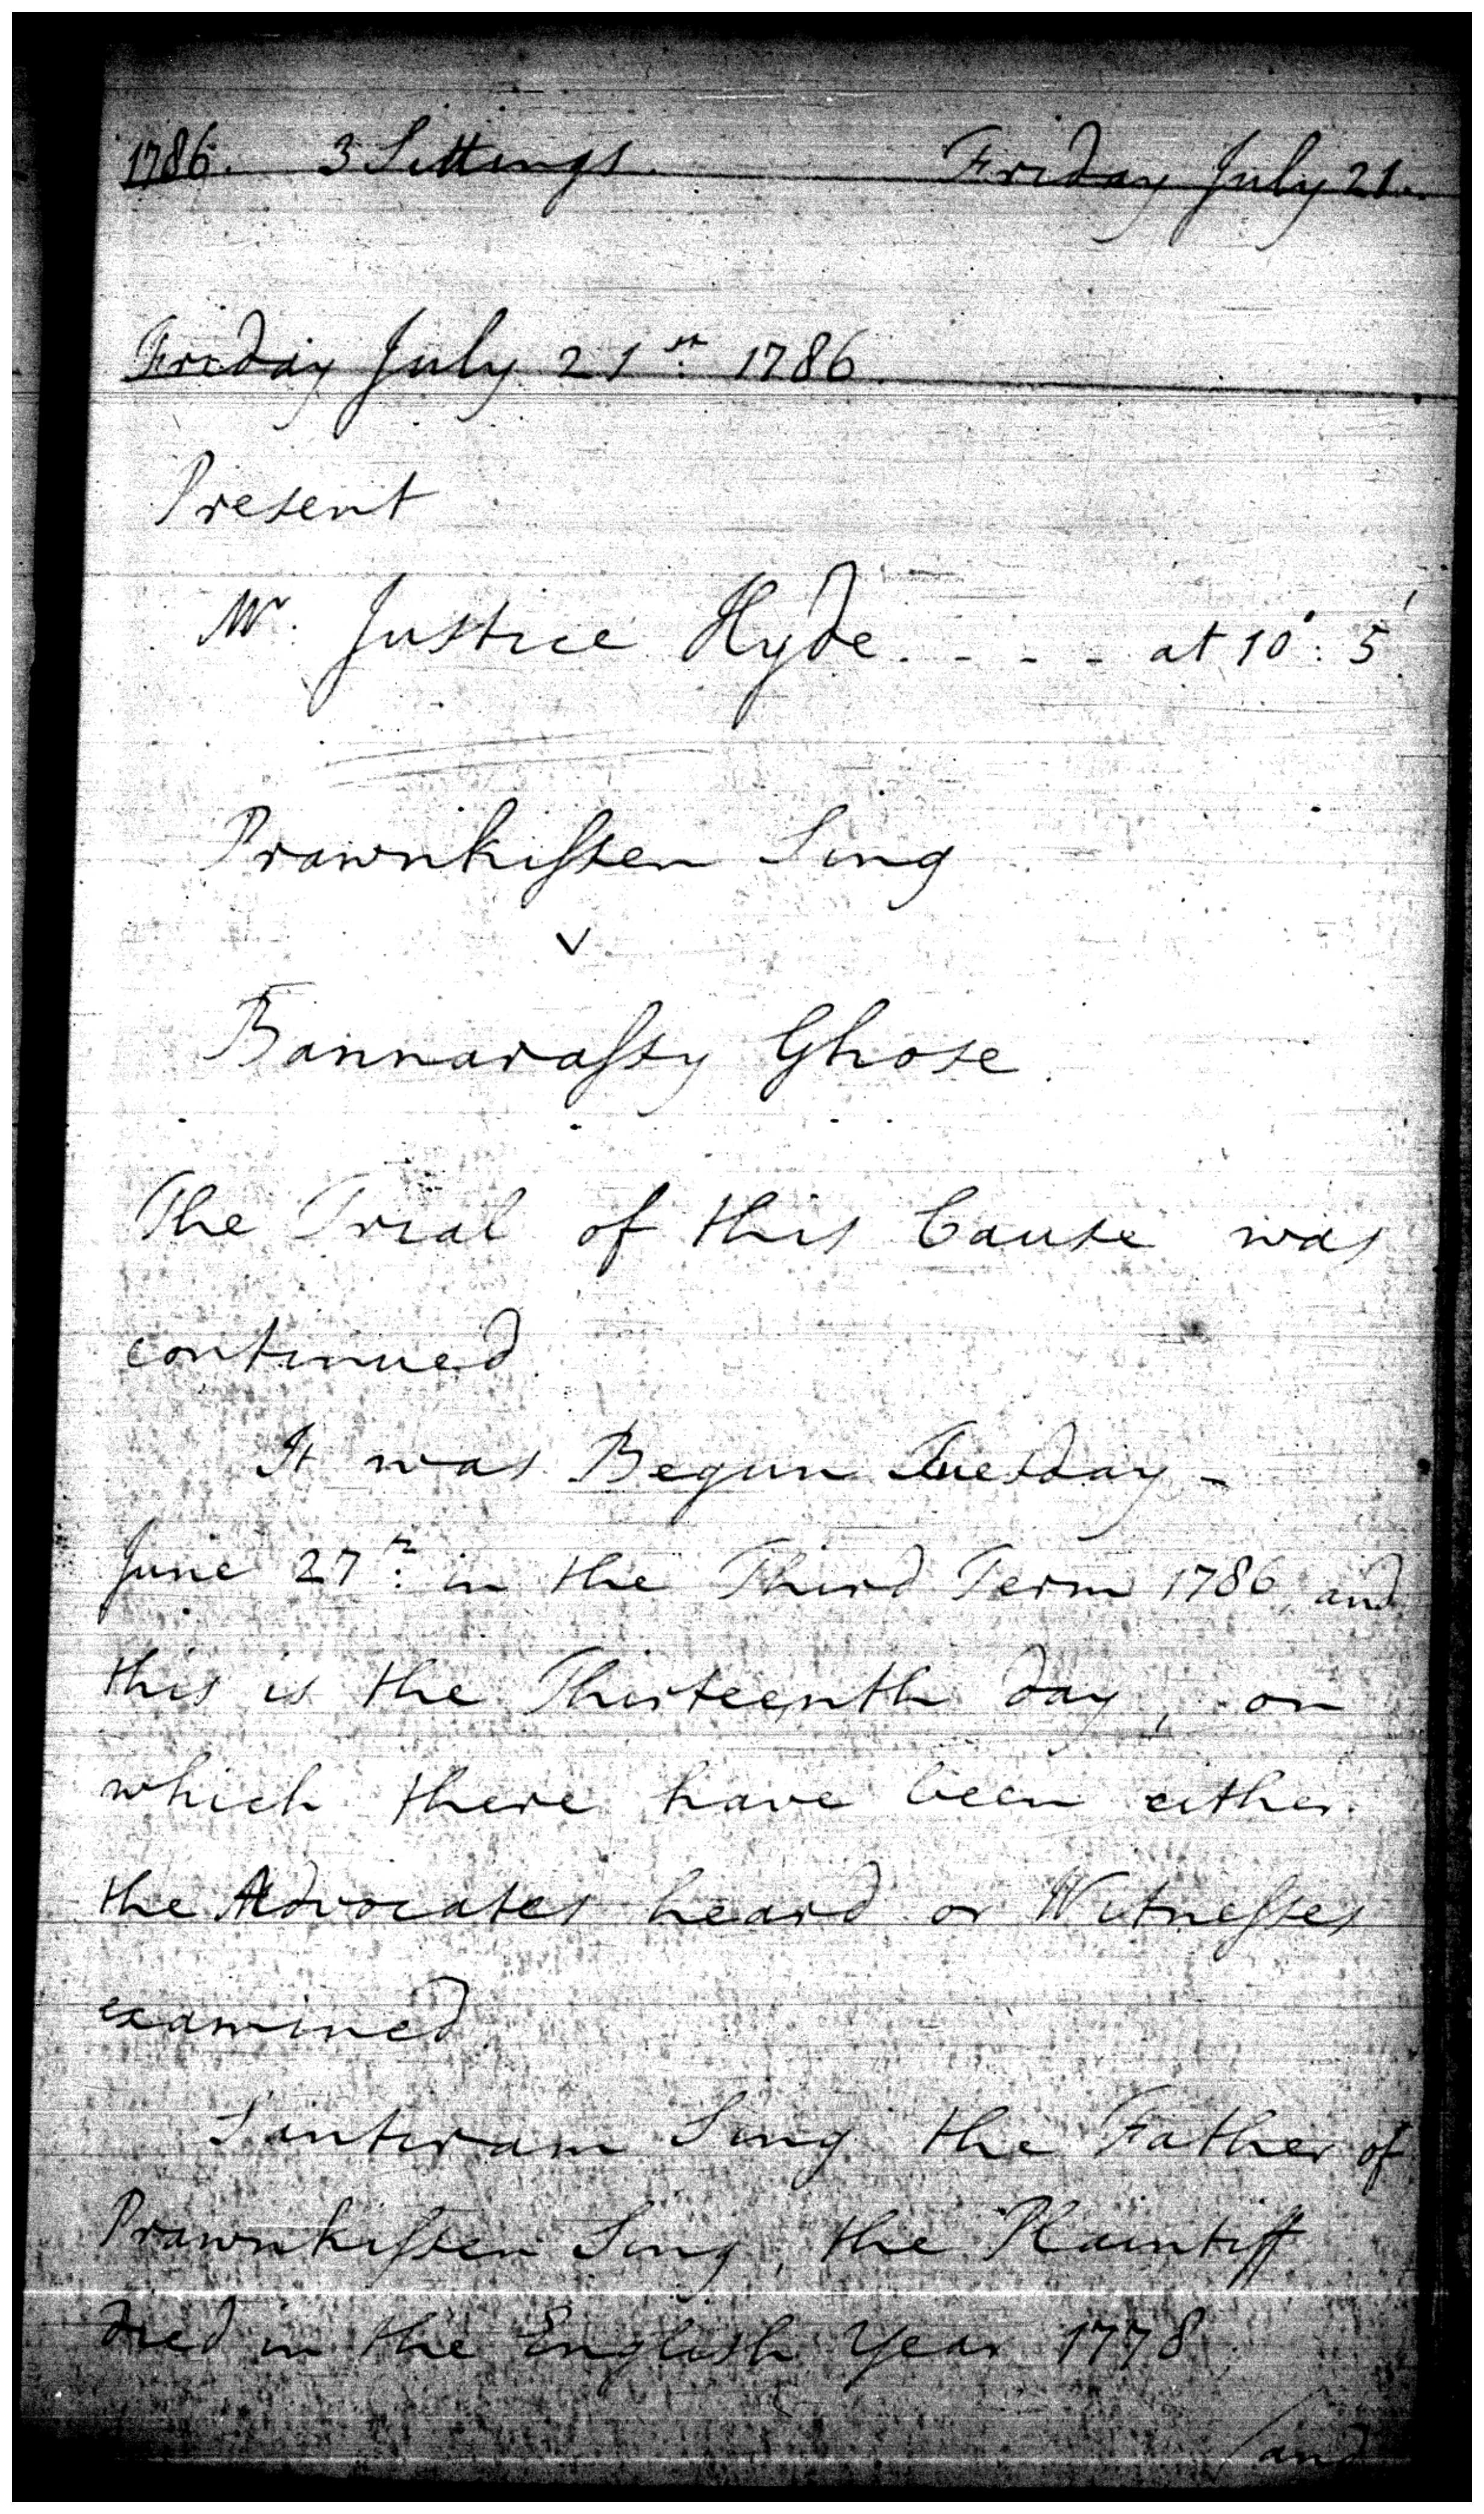 1786. 3 Sittings. Friday July 21.
Friday July 21st. 1786.
Present
Mr. Justice Hyde. - - - at 10°: 5'
Prawnkiſsen Sing
v
Bannaraſsy Ghose.
The Trial of this Cause was
continued.
It was Begun Tuesday -
June 27th. in the Third Term 1786, and
this is the Thirteenth day, on
which there have been either
the Advocates heard or Witneſses
examined.
Santiram Sing the Father of
Prawnkiſsen Sing, the Plaintiff
died in the English Year 1778.
/and